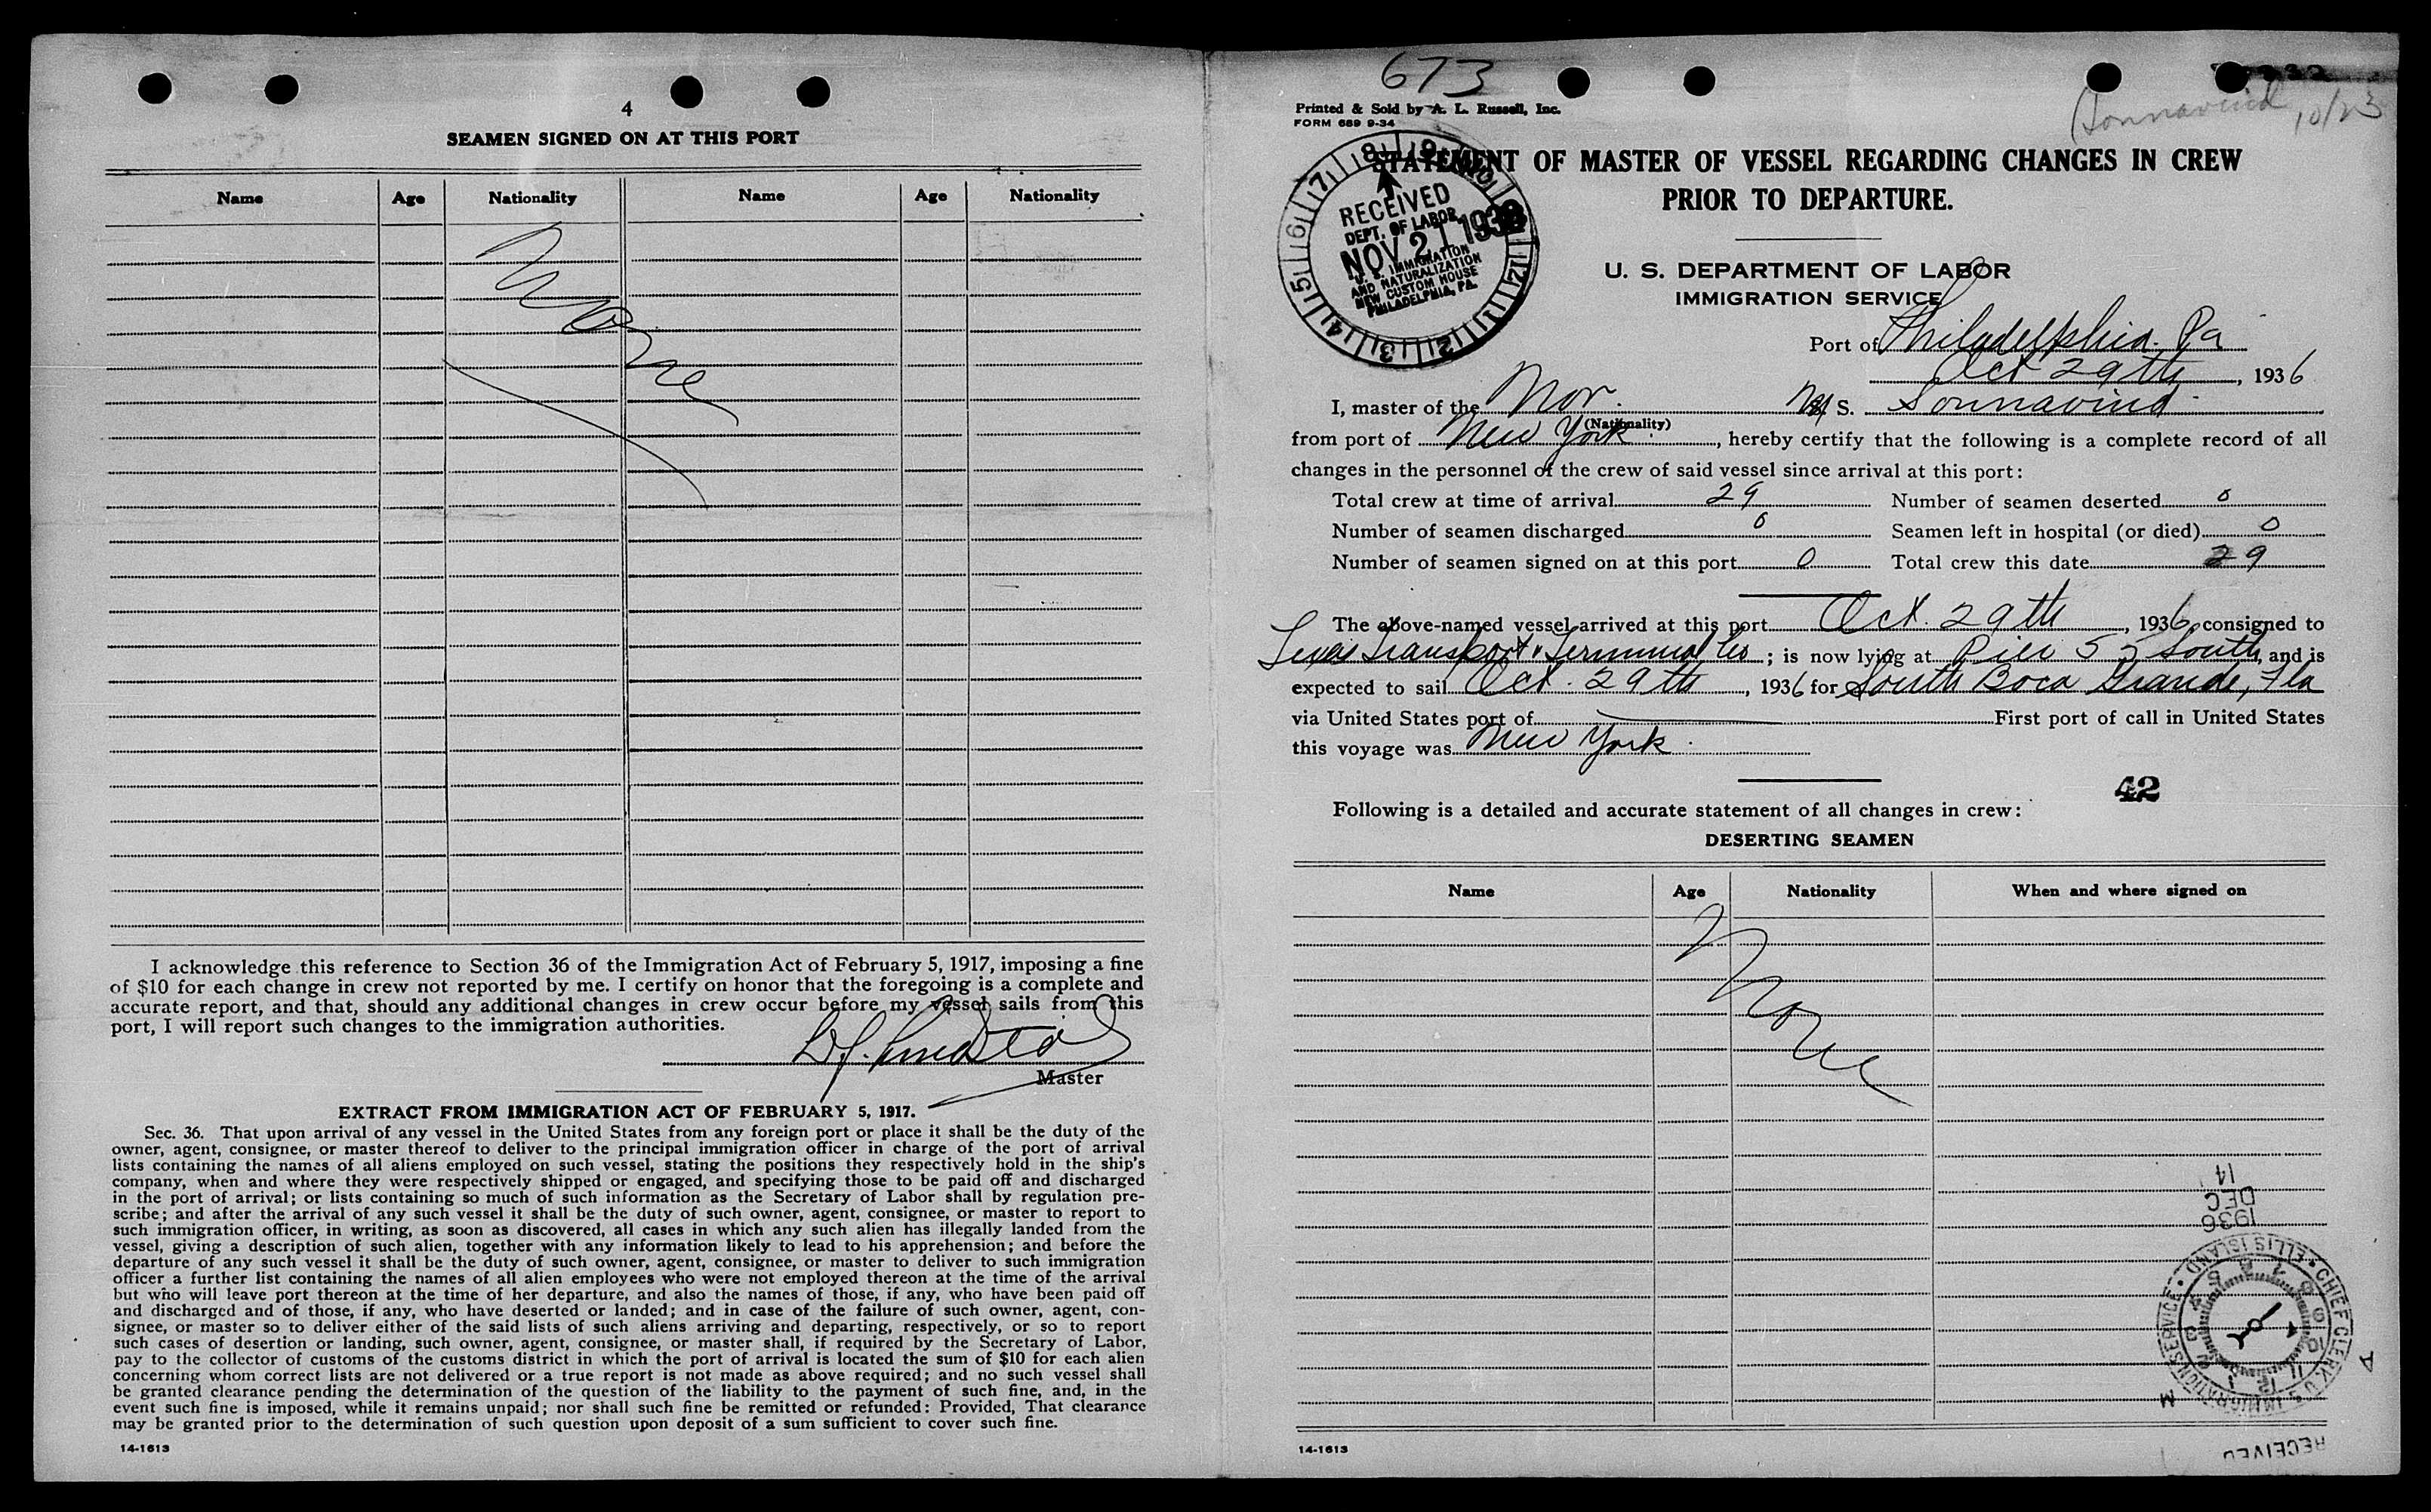 4
SEAMEN SIGNED ON AT THIS PORT
Name Age Nationality Name Age Nationality
None
I acknowledge this reference to Section 36 of the Immigration Act of February 5, 1917, imposing a fine
of $10 for each change in crew not reported by me. I certify on honor that the foregoing is a complete and
accurate report, and that, should any additional changes in crew occur before my vessel sails from this
port, I will report such changes to the immigration authorities.
Master
EXTRACT FROM IMMIGRATION ACT OF FEBRUARY 5, 1917.
Sec. 36. That upon arrival of any vessel in the United States from any foreign port or place it shall be the duty of the
owner, agent, consignee, or master thereof to deliver to the principal immigration officer in charge of the port of arrival
lists containing the names of all aliens employed on such vessel, stating the positions they respectively hold in the ship's
company, when and where they were respectively shipped or engaged, and specifying those to be paid off and discharged
in the port of arrival; or lists containing so much of such information as the Secretary of Labor shall by regulation pre-
scribe; and after the arrival of any such vessel it shall be the duty of such owner, agent, consignee, or master to report to
such immigration officer, in writing, as soon as discovered, all cases in which any such alien has illegally landed from the
vessel, giving a description of such alien, together with any information likely to lead to his apprehension; and before the
departure of any such vessel it shall be the duty of such owner, agent, consignee, or master to deliver to such immigration
officer a further list containing the names of all alien employees who were not employed thereon at the time of the arrival
but who will leave port thereon at the time of her departure, and also the names of those, if any, who have been paid off
and discharged and of those, if any, who have deserted or landed; and in case of the failure of such owner, agent, con-
signee, or master so to deliver either of the said lists of such aliens arriving and departing, respectively, or so to report
such cases of desertion or landing, such owner, agent, consignee, or master shall, if required by the Secretary of Labor,
pay to the collector of customs of the customs district in which the port of arrival is located the sum of $10 for each alien
concerning whom correct lists are not delivered or a true report is not made as above required; and no such vessel shall
be granted clearance pending the determination of the question of the liability to the payment of such fine, and, in the
event such fine is imposed, while it remains unpaid; nor shall such fine be remitted or refunded: Provided, That clearance
may be granted prior to the determination of such question upon deposit of a sum sufficient to cover such fine.
14-1613
673
Printed & Sold by A. L. Russell, Inc.
FORM 689 9-34
Sonnavind 10/23
STATEMENT OF MASTER OF VESSEL REGARDING CHANGES IN CREW
PRIOR TO DEPARTURE.
RECEIVED
DEPT. OF LABOR
NOV 21 1936
U. S. IMMIGRATION
AND NATURALIZATION
NEW CUSTOM HOUSE
PHILADELPHIA, PA.
U. S. DEPARTMENT OF LABOR
IMMIGRATION SERVICE
Port of Philadelphia. Pa
Oct 29th, 1936
I, master of the Nor. M S. Sonnavind
(Nationality)
from port of New York, hereby certify that the following is a complete record of all
changes in the personnel of the crew of said vessel since arrival at this port:
Total crew at time of arrival 29 Number of seamen deserted 0
Number of seamen discharged 0 Seamen left in hospital (or died) 0
Number of seamen signed on at this port 0 Total crew this date 29
The above-named vessel arrived at this port Oct. 29th, 1936, consigned to
Texas Transport & Terminal Co; is now lying at Pier 55 South, and is
expected to sail Oct. 29th, 1936 for South Boca Grande, Fla
via United States port of First port of call in United States
this voyage was New York.
42
Following is a detailed and accurate statement of all changes in crew:
DESERTING SEAMEN
Name Age Nationality When and where signed on
None
14
DEC
1936
CHIEF CLERK U S IMMIGRATION SERVICE • ELLIS ISLAND •
RECEIVED
14-1613